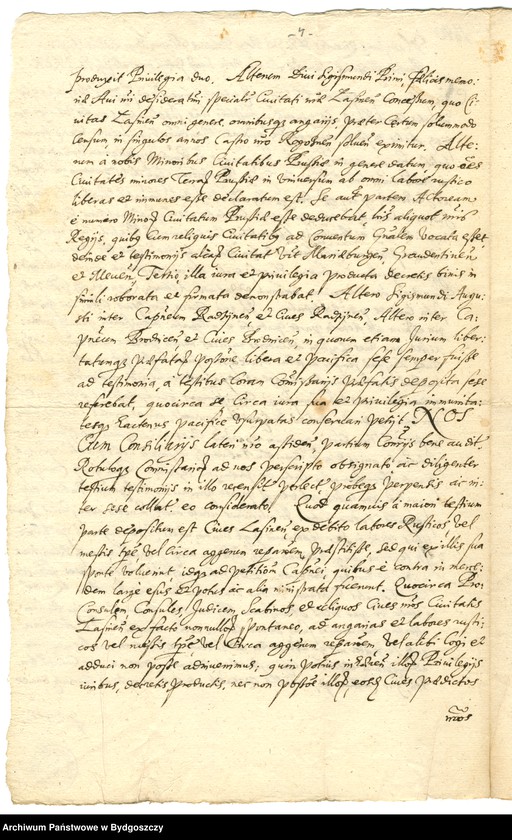 -7-
produxit Privilegia duo. Alterum Divi Sigismundi Primi, fælicis memo:
riæ Avi nri desideratmi, specialr Civitati nræ Lasinen concessum, quo Ci
vitas Lasinen omni genere, omnibusqz angarijs, præter Certum solummodo
Censum in singulos annos Castro nro Rogoznen solven eximitur. Alte:
rum à nobis Minoribus Civitatibus Prussiæ in genere datum, quo oēs
Civitates minores Terrar Prussiæ in universum ab omni labore rustico
liberas et immunes esse declaratum est. Se aut partem Actoream
è numero Minor Civitatum Prussiæ esse deducebat, aliquot nris
Regijs, quibg cum reliquis Civitatibg ad Conventum Gnalem vocata esset
deinde et testimonijs aliar Civitat vti Marieburgen, Graudentinen
et Meven, Tertio, illa iura et privilegia producta decretis binis in
simili roborata et firmata demonstrabat. Altero Sigismundi Augu:
sti inter Capneum Radzinen et Cives Radzinen, Altero inter Ca:
pneum Brodnicen et Cives Brodnicen, in quorum etiam Jurium liber:
tatumqz præfatar possone libera et pacifica sese semper fuisse
ad testimonia, à testibus coram Comissarijs præfatis deposita sese
referebat, quocirca se circa iura sua et privilegia immunita:
tesqz hactenus pacifice usurpatas conservari petijt. NOS
Cum Consiliarijs lateri nro assiden, partium Conrijs bene audit.
Rotuloqz Commissarior ad nos perscripto obsignato ac diligenter
testium testimonijs in illo recensit perlect probeqz perpensis ac in:
ter sese collat, eo considerato. Quod quamvis à maiori testium
parte depositum est Cives Lasinen ex debito labores Rusticos, vel
messis tpre vel circa aggerem reparan, præstitisse, sed qui ex illis sua
sponte voluerint, idqz ad petitionem Capnei, quibus è contra in merce:
dem large esus et potus ac alia ministrata fuerunt. Quocirca Pro:
Consulem Consules, Judicem, Scabinos et reliquos Cives nros Civitatis
Lasinen ex facto nonnullor spontaneo, ad angarias et labores rusti:
cos vel messis tpre vel circa aggerum reparan, vel alibi Cogi et
adduci non posse adinvenimus; quin potius, illor Privilegijs
iuribus, decretis productis, nec non possone illor, eosd Cives prædictos
nros